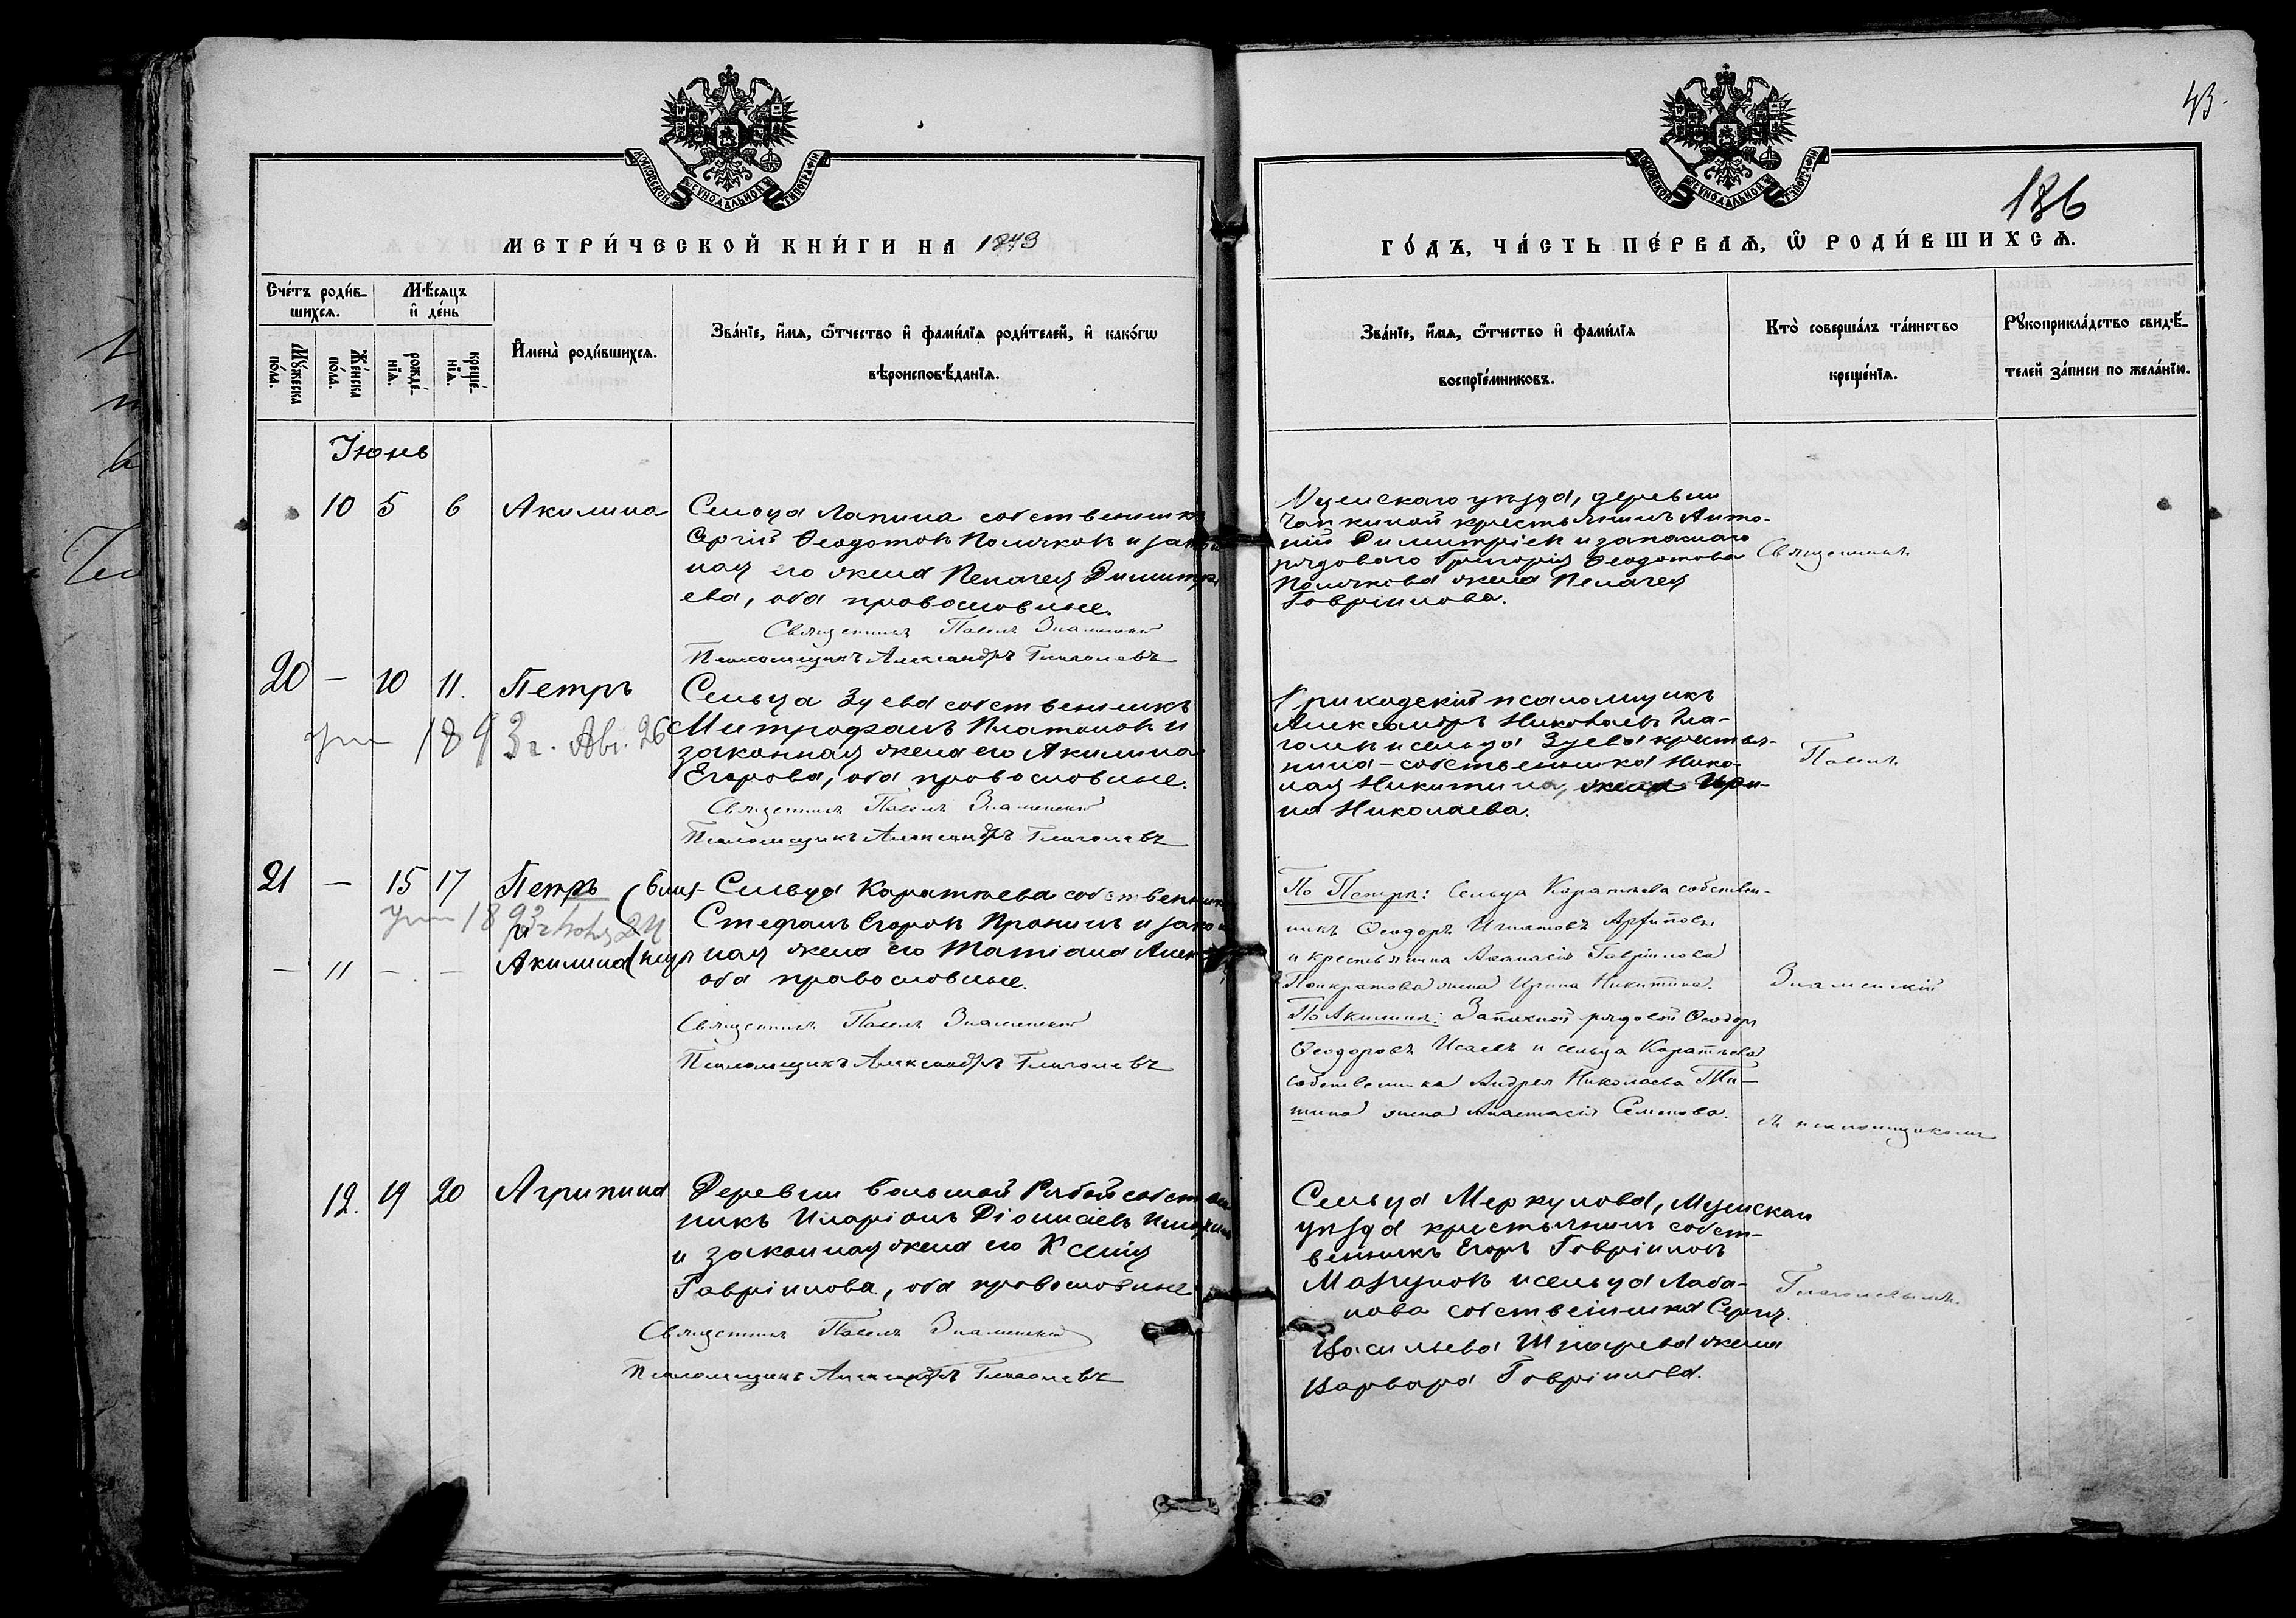 43.
186
МОСКОВСКОЙ СѴНОДАЛЬНОЙ ТИПОГРАФІИ
МОСКОВСКОЙ СѴНОДАЛЬНОЙ ТИПОГРАФІИ
МЕТРИ́ЧЕСКОЙ КНИ́ГИ НА 1893
ГО́ДЪ, ЧА́СТЬ ПЕ́РВАѦ, Ѽ РОДИ́ВШИХСѦ.
Сче́тъ роди́в-
шихсѧ.
Мѣ́сѧцъ
и҆ де́нь
Мꙋ́жеска по́ла.
Же́нска по́ла.
рожде́-
нїѧ.
креще́-
нїѧ.
И҆мена̀ роди́вшихсѧ.
Зва́нїе, и҆́мѧ, ѻ҆́тчество и҆ фами́лїѧ роди́телей, и҆ како́гѡ
вѣроисповѣ́данїѧ.
Зва́нїе, и҆́мѧ, ѻ҆́тчество и҆ фами́лїѧ
воспрїе́мниковъ.
Кто̀ соверша́лъ та́инство
креще́нїѧ.
Рꙋкоприкла́дство свидѣ́-
телей за́писи по жела́нїю.
Іюнь
10 5 6 Акилина
Сельца Лапина собственникъ
Сергій Ѳеодотовъ Поляковъ и закон
ная его жена Пелагея Димитрі
ева, оба православные.
Священникъ Павелъ Знаменскій
Псаломщикъ Александръ Глаголевъ
уѣзда, деревни
крестьянинъ Анто-
ній Димитріевъ и запаснаго
рядоваго Григорія Ѳеодотова
Полякова жена Пелагея
Гавріилова.
Священникъ
20 — 10 11. Петръ
ум 1893 г. Авг. 26
Сельца Зуева собственникъ
Митрофанъ Платоновъ и
законная жена его Акилина
Егорова, оба православные.
Священникъ Павелъ Знаменскій
Псаломщикъ Александръ Глаголевъ
Приходскій псаломщикъ
Александръ Николаевъ Гла-
голевъ и сельца Зуева крестья-
нина-собственника Нико-
лая Никитина, жена Ири-
на Николаева.
Павелъ
21 — 15 17 Петръ (близ-
ум 1893
— 11 — — Акилина (нецы
Сельца Каратѣева собственникъ
Стефанъ Егоровъ Пронинъ и закон
ная жена его Татіана
оба православные.
Священникъ Павелъ Знаменскій
Псаломщикъ Александръ Глаголевъ
По Петрѣ: Сельца Каратѣева собствен-
никъ Ѳеодоръ Игнатовъ
и крестьянина Аѳанасія Гавріилова
Панкратова жена Ирина Никитина.
По Акилинѣ: Запасной рядовой Ѳеодоръ
Ѳеодоровъ Исаевъ и сельца Каратѣева
собственника Андрея Николаева Ти-
шина жена Анастасія Семенова.
Знаменскій
съ псаломщикомъ
12. 19 20 Агрипина
Деревни Большой собствен
никъ Иларіонъ Діонисіевъ
и законная жена его Ксенія
Гавріилова, оба православные
Священникъ Павелъ Знаменскій
Псаломщикъ Александръ Глаголевъ
Сельца Меркулова,
уѣзда крестьянинъ собст-
венникъ Егоръ Гавріиловъ
и сельца Лаба-
нова собственника Сергія
Васильева жена
Варвара Гавріилова.
Глаголевымъ.